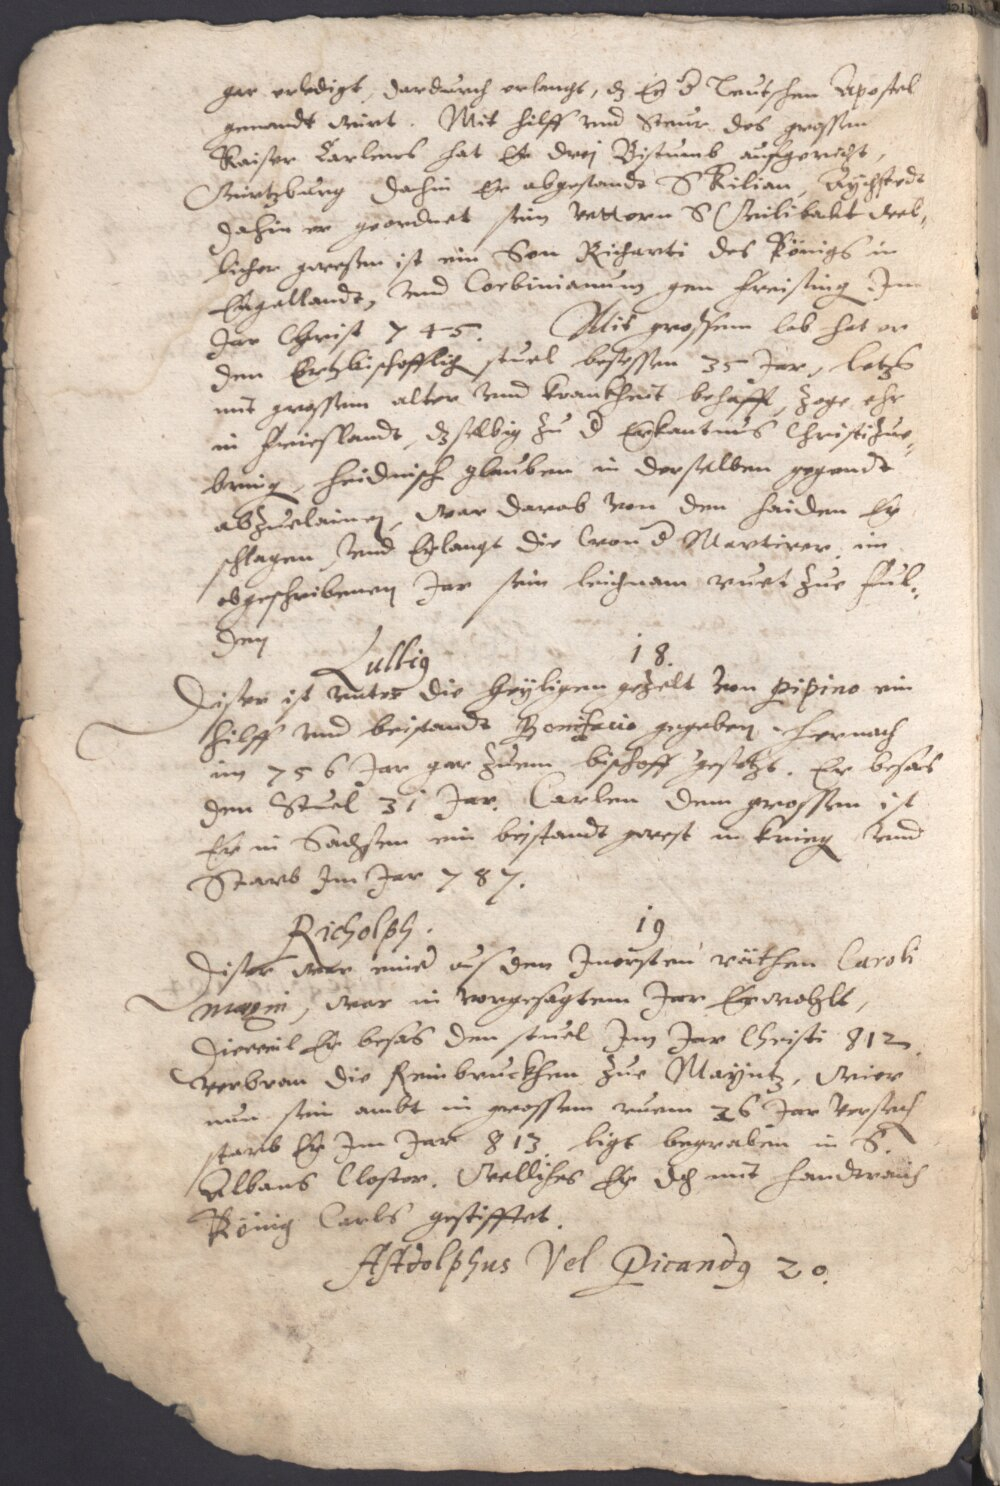 gar erledigt, dardurch erlangt, dz Er d Teutschen Apostel
genandt wirt. Mit hilff vnd Steur des grossen
Kaiser Carlens hat Er drej Bistumb aufgericht,
Wirtzburg dahin Er abgesandt S Kilian, Aychstedt
dahin er geordnet sein vettern S Wilibaldt wel,
licher gewesen ist ein Son Richarti des Königs in
Engellandt, vnd Corbinianum gen Freising Im
Jar Christ 745. Mit grossem lob hat er
den Ertzbischofflich stuel besessen 35 Jar, letzs
mit grossem alter vnd kranckheit behafft, zoge ehr
in Friesslandt, dz selbig zu d Erkantnus Christi zue,
bring, heidnisch glauben in derselben gegendt
abzuelainen, war darob von den haiden Er
schlagen vnd Erlangt die Cron d Martirer, im
obgeschribenen Jar sein leichnam ruet zue Ful,
den
Lullig 18.
Diser ist vnter die heyligen gezelt von Pipino ein
hilff vnd beistandt Bonifacio gegeben hernach
im 756 Jar gar zuem bischoff gesetzt. Er besas
den Stuel 31 Jar. Carlen dem grossen ist
Er in Sachssen ein beistandt gwest in krieg vnd
Starb Im Jar 787.
Richolph. 19
Diser war einer auss den Innersten räthen Caroli
magni, war in vorgesagtem Jar Erwohlt,
dieweil Er besas den stuel Im Jar Christi 812
verbran die Reinbruckhen zue Mayntz, Wier
nun sein ambt in grossem ruem 26 Jar versach
starb Er Im Jar 813 ligt begraben in S.
Albans Closter. Welliches Er doch mit handtraich
König Carls gestifftet.
Astdolphus Vel Picandg 20.